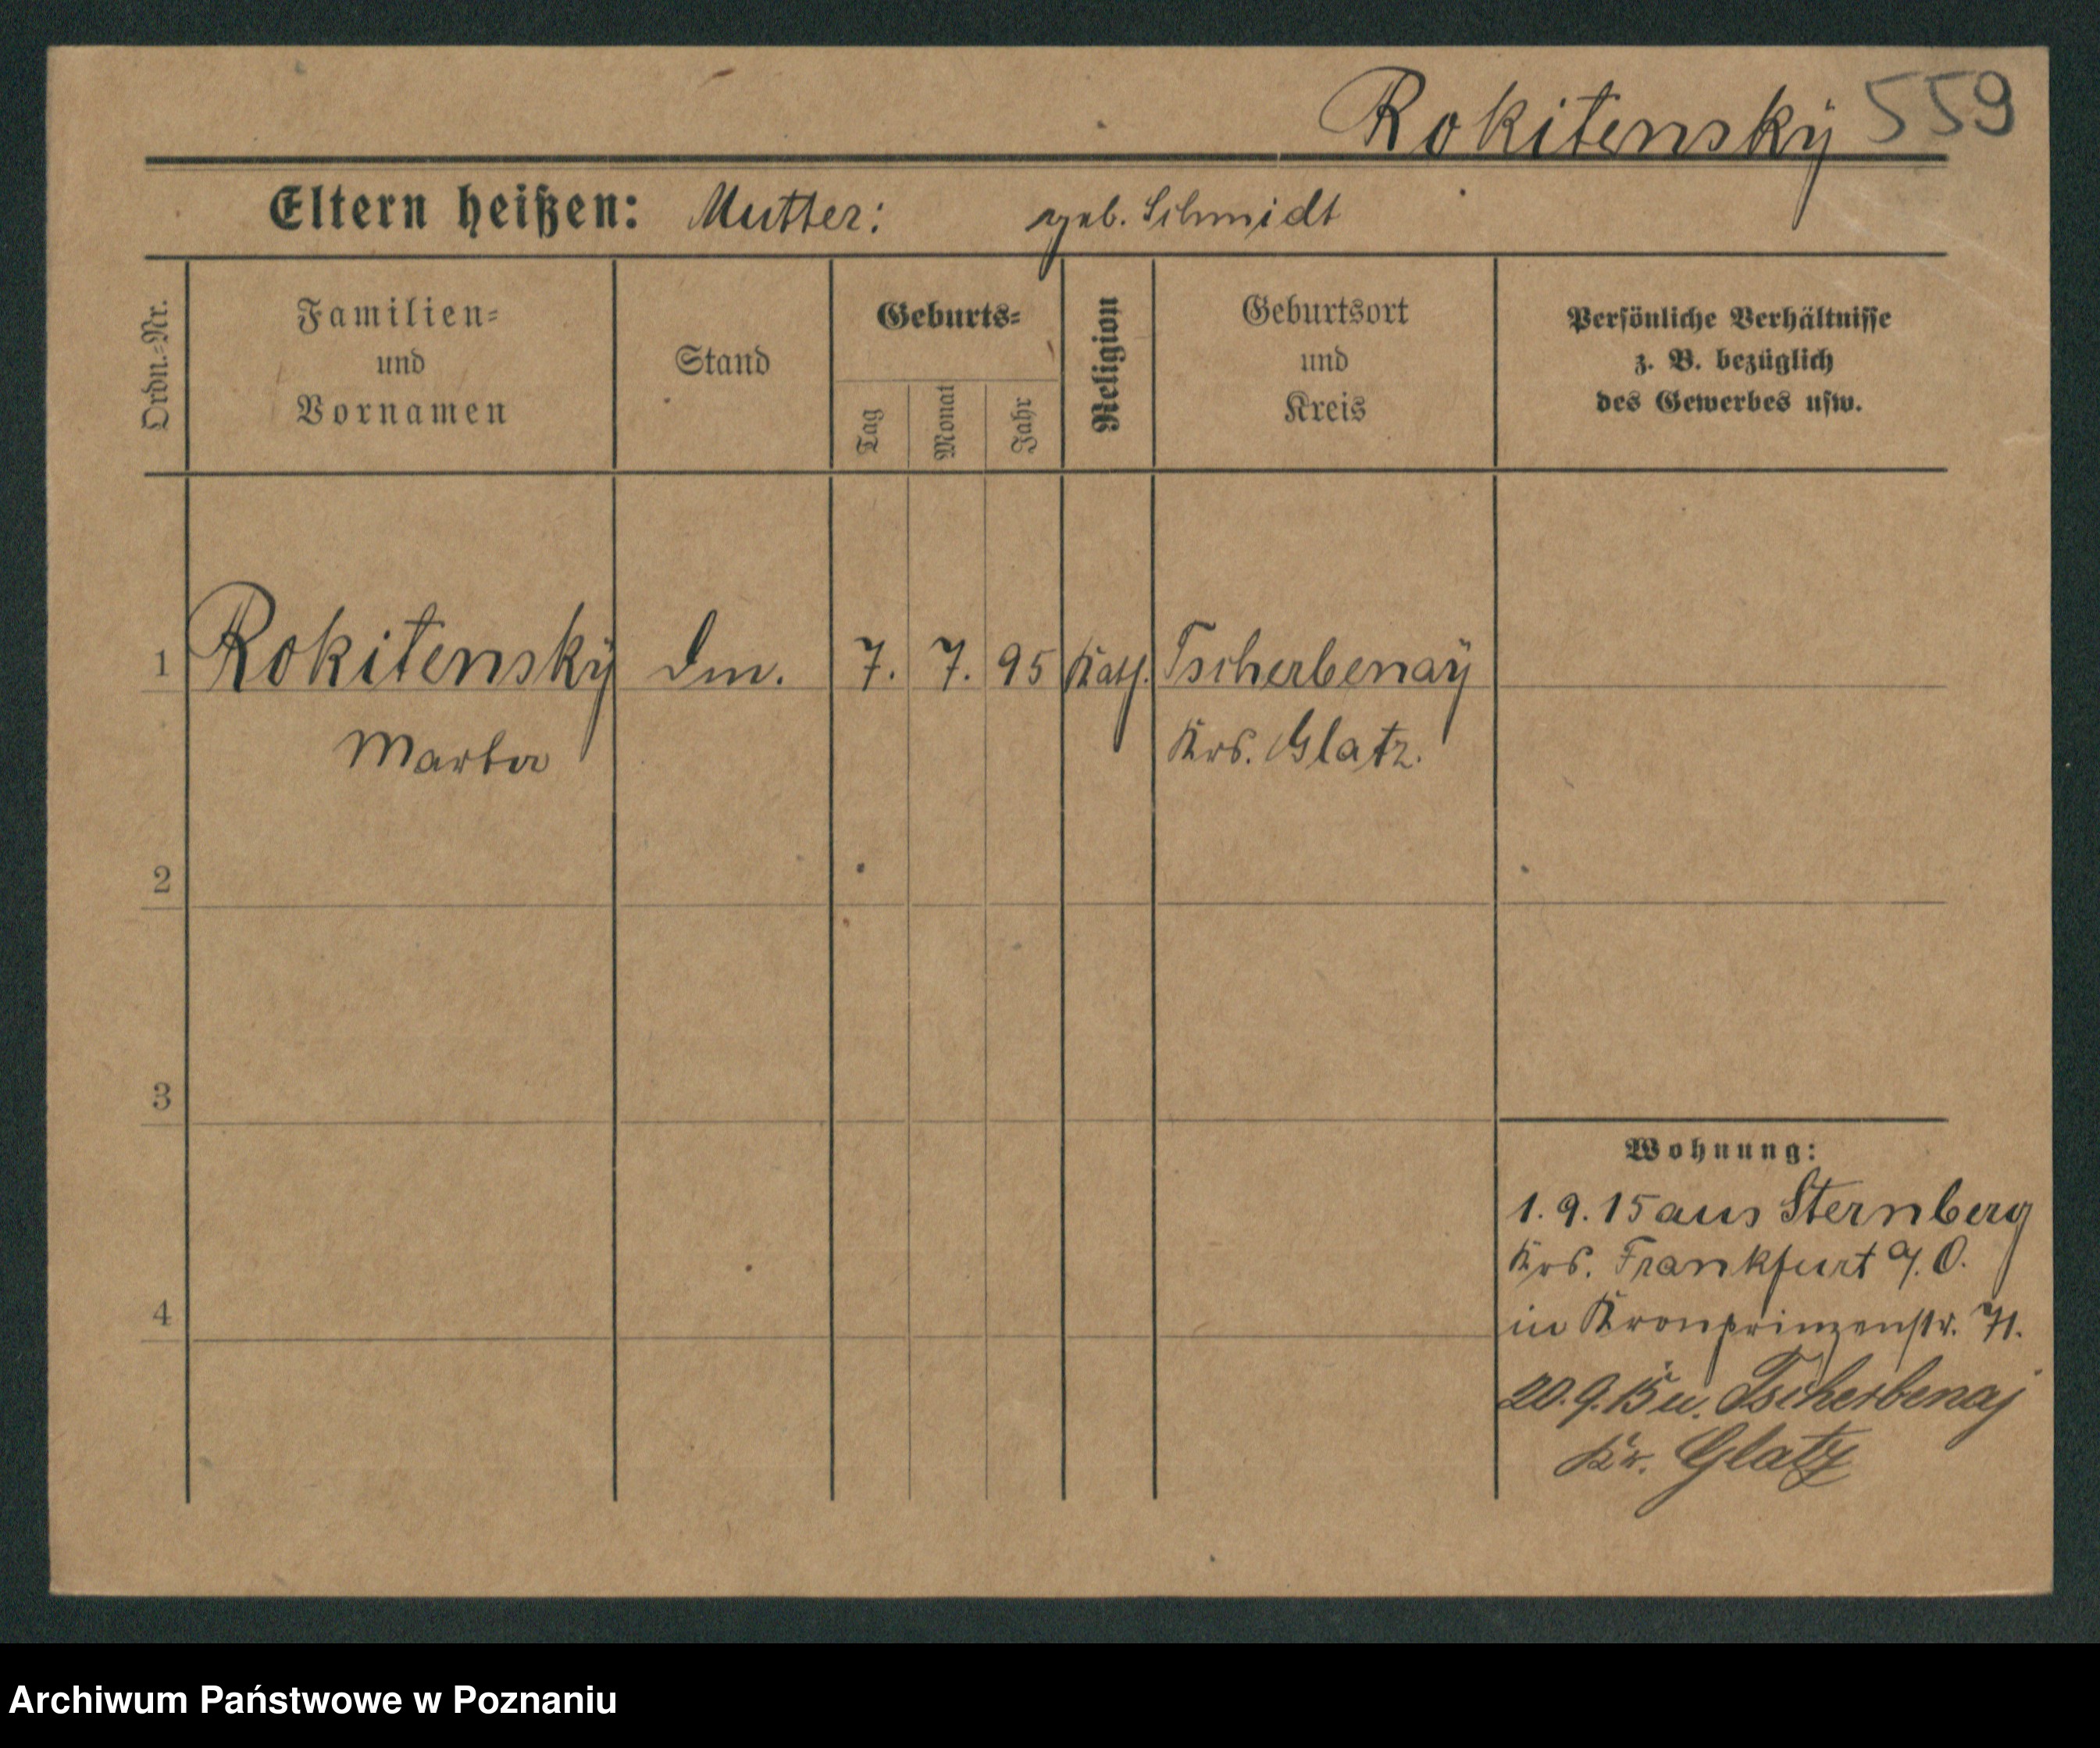 Rokitenskÿ 559
Eltern heißen: Mutter: geb. Schmidt
Ordn.-Nr.
Familien-
und
Vornamen
Stand
Geburts-
Tag
Monat
Jahr
Religion
Geburtsort
und
Kreis
Persönliche Verhältnisse
z. B. bezüglich
des Gewerbes usw.
1 Rokitenskÿ 7. 7. 95 Kath. Tscherbenaÿ
Krs. Glatz.
2
3
Wohnung:
1. 9. 15 aus Sternberg
Krs. Frankfurt a/O.
4
in Kronprinzenstr. 71.
20. 9. 15 n. Tscherbenaj
Kr. Glatz
Archiwum Państwowe w Poznaniu